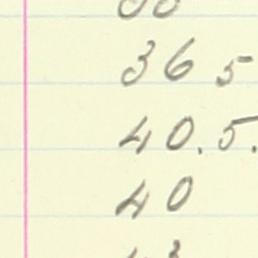 36 5
40.5.
40